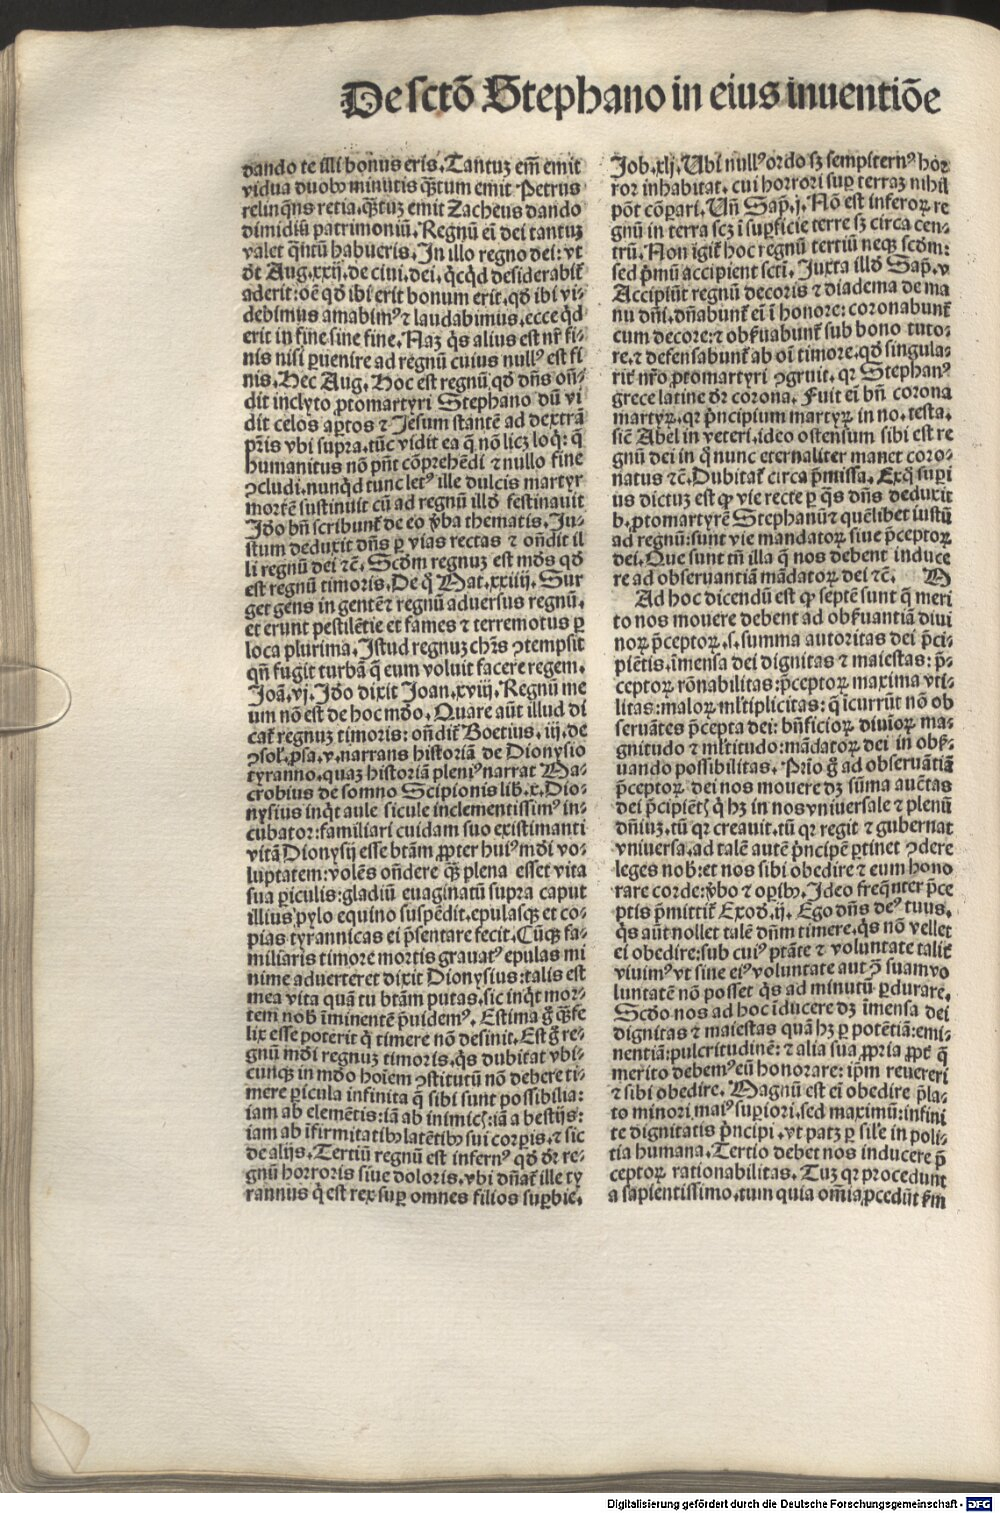 De sctō Stephano in eius inuentiōe
dando te illi bonus eris. Tantuꝫ em̄ emit
vidua duobꝰ minutis qꝫtum emit Petrus
relinqn̄s retia. qꝫtuꝫ emit Zacheus dando
dimidiū patrimoniū. Regnū ei dei tantuꝫ
valet qͥntū habueris. In illo regno dei: vt
dt Aug. xxij. de ciui. dei. qͥcqͥd desiderabit̄
aderit: oē qd ibi erit bonum erit. qd ibi vi-
debimus amabimꝰ ⁊ laudabimus. ecce qd
erit in fine sine fine. Naꝫ qͥs alius est nr̄ fi-
nis nisi ꝑuenire ad regnū cuius nullꝰ est fi
nis. Hec Aug. Hoc est regnū qd dn̄s on̄-
dit inclyto ꝓtomartyri Stephano dū vi
dit celos aꝑtos ⁊ Jesum stantē ad dextrā
pr̄is vbi supra. tūc vidit ea q̄ nō licꝫ loqͥ: q̄
humanitus nō pn̄t cōprehēdi ⁊ nullo fine
ꝯcludi. nunqͥd tunc letꝰ ille dulcis martyr
mortē sustinuit cū ad regnū illd festinauit
Jdo bn̄ scribunt̄ de eo v̄ba thematis. Ju-
stum deduxit dn̄s ꝑ vias rectas ⁊ on̄dit il
li regnū dei ⁊c̄. Scd̄m regnuꝫ est mdōs qd
est regnū timoris. De qͦ Mat. xxiiij. Sur
get gens in gentē ⁊ regnū aduersus regnū.
et erunt pestilētie et fames ⁊ terremotus ꝑ
loca plurima. Istud regnuꝫ chr̄s ꝯtempsit
qn̄ fugit turbā q̄ eum voluit facere regem.
Joā. vj. Jdo dixit Joan. xviij. Regnū me
um nō est de hoc mdō. Quare aūt illud di
cat̄ regnuꝫ timoris: on̄dit̄ Boetius. iij. de
ꝯsol. ꝓsa. v. narrans historiā de Dionysio
tyranno. quaꝫ historiā pleniꝰ narrat Ma-
crobius de somno Scipionis lib. x. Dio-
nysius inqͥt aule sicule inclementissimꝰ in-
cubator: familiari cuidam suo existimanti
vitā Dionysij esse btām ꝓpter huiꝰ mdi vo-
luptatem: volēs on̄dere qꝫ plena esset vita
sua ꝑiculis: gladiū euaginatū supra caput
illius pylo equino suspēdit. epulasqꝫ et co-
pias tyrannicas ei p̄sentare fecit. Cūqꝫ fa-
miliaris timore mortis grauatꝰ epulas mi
nime aduerteret dixit Dionysius: talis est
mea vita quā tu btām putas. sic inqͥt mor-
tem nob̄ īminentē p̄uidemꝰ. Estima g̊ qꝫ fe
lix esse poterit qͥ timere nō desinit. Est g̊ re-
gnū mdi regnuꝫ timoris. qͥs dubitat vbi-
cunqꝫ in mdo hoiem ꝯstitutū nō debere ti-
mere ꝑicula infinita q̄ sibi sunt possibilia:
iam ab elemētis: iā ab inimicꝭ: iā a bestijs:
iam ab īfirmitatibꝰ latētibꝰ sui corꝑis. ⁊ sic
de alijs. Tertiū regnū est infernꝰ qd dr̄ re-
gnū horroris siue doloris. vbi dn̄at̄ ille ty
rannus qͥ est rex suꝑ omnes filios suꝑbie.
Job. xlj. Vbi nullꝰ ordo sꝫ sempiternꝰ hor
ror inhabitat. cui horrori suꝑ terraꝫ nihil
pōt cōꝑari. Un̄ Sap̄. j. Nō est inferoꝝ re
gnū in terra scꝫ ī suꝑficie terre sꝫ circa cen-
trū. Non igit̄ hoc regnū tertiū neqꝫ scdm̄:
sed pͥmū accipient sctī. Juxta illd Sap̄. v
Accipiūt regnū decoris ⁊ diadema de ma
nu dn̄i. dn̄abunt̄ ei ī honore: coronabunt̄
cum decore: ⁊ obẜuabunt̄ sub bono tuto-
re. ⁊ defensabunt̄ ab oi timore. qd singula-
rit̄ nr̄o ꝓtomartyri ꝯgruit. qr Stephanꝰ
grece latine dr̄ corona. Fuit ei bn̄ corona
martyꝝ. qr pͥncipium martyꝝ in no. testa.
sic̄ Abel in veteri. ideo ostensum sibi est re
gnū dei in qͦ nunc eternaliter manet coro-
natus ⁊c̄. Dubitat̄ circa p̄missa. Exqͦ suꝑi
us dictuꝫ est ꝙ vie recte ꝑ qͣs dn̄s deduxit
b. ꝓtomartyrē Stephanū ⁊ quēlibet iustū
ad regnū: sunt vie mandatoꝝ siue p̄ceptoꝝ
dei. Que sunt tn̄ illa q̄ nos debent induce
re ad obseruantiā mādatoꝝ dei ⁊c̄. M
Ad hoc dicendū est ꝙ septē sunt q̄ meri
to nos mouere debent ad obẜuantiā diui
noꝝ p̄ceptoꝝ. s. summa autoritas dei p̄ci-
piētis. īmensa dei dignitas ⁊ maiestas: p̄-
ceptoꝝ rōnabilitas: p̄ceptoꝝ maxima vti-
litas: maloꝝ mlt̄iplicitas: q̄ icurrūt nō ob
seruātes p̄cepta dei: bn̄ficioꝝ diuioꝝ ma-
gnitudo ⁊ mlt̄itudo: mādatoꝝ dei in obẜ-
uando possibilitas. Prīo g̊ ad obseruātiā
p̄ceptoꝝ dei nos mouere dꝫ sūma auctas
dei p̄cipiētꝭ qͥ hꝫ in nos vniuersale ⁊ plenū
dn̄iuꝫ. tū qr creauit. tū qr regit ⁊ gubernat
vniuersa. ad talē autē pͥncipē ꝑtinet ꝯdere
leges nob̄: et nos sibi obedire ⁊ eum hono
rare corde: v̄bo ⁊ oꝑibꝰ. Ideo freqn̄ter p̄ce
ptis p̄mittit̄ Exod. ij. Ego dn̄s deꝰ tuus.
qͥs aūt nollet talē dn̄m timere. qͥs nō vellet
ei obedire: sub cuiꝰ ptāte ⁊ voluntate talit̄
viuimꝰ vt sine eiꝰ voluntate aut ꝯ suam vo
luntatē nō posset qͥs ad minutū ꝑdurare.
Scdo nos ad hoc īducere dꝫ īmensa dei
dignitas ⁊ maiestas quā hꝫ ꝑ potētiā: emi-
nentiā: pulcritudinē: ⁊ alia sua ꝓpria ꝓpt̄ q̄
merito debemꝰ eū honorare: ipm̄ reuereri
⁊ sibi obedire. Magnū est ei obedire p̄la-
to minori. maiꝰ suꝑiori. sed maximū: infini
te dignitatis pͥncipi. vt patꝫ ꝑ sil̄e in poli-
tia humana. Tertio debet nos inducere p̄
ceptoꝝ rationabilitas. Tuꝫ qr procedunt
a sapientissimo. tum quia om̄ia ꝓcedūt ẜm
Digitalisierung gefördert durch die Deutsche Forschungsgemeinschaft - DFG